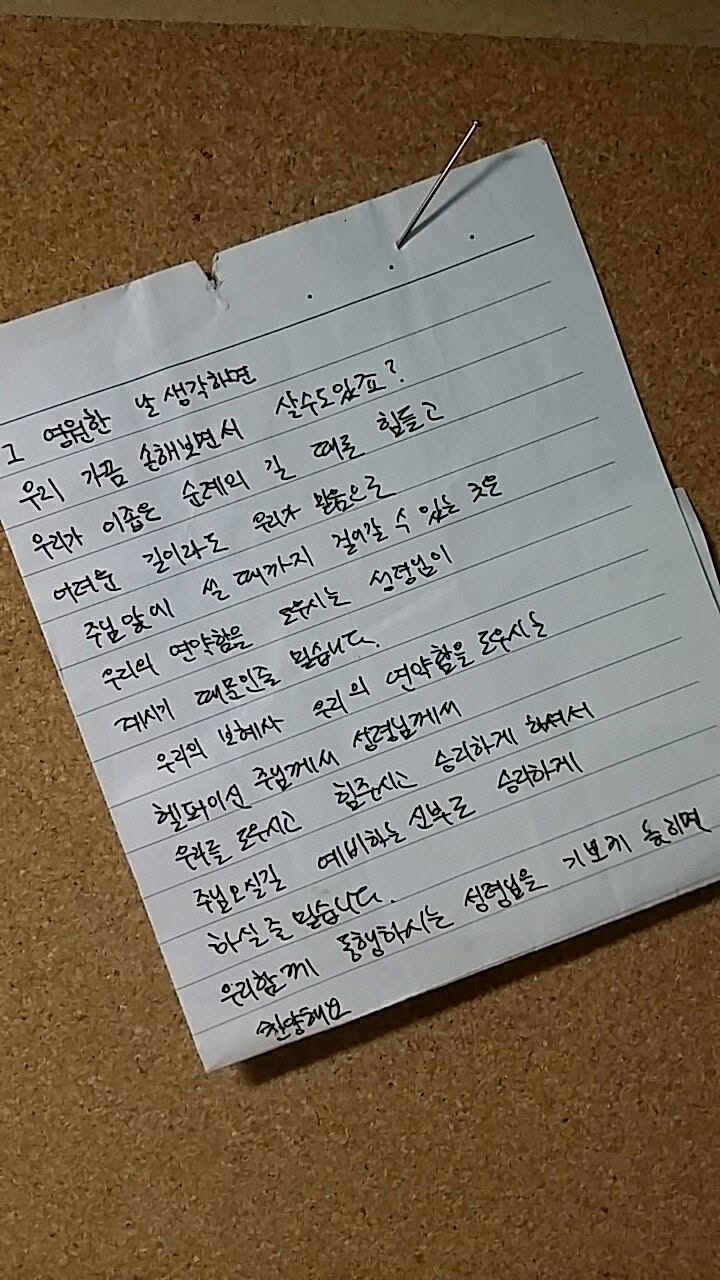 그 영원한 날 생각하면
우리 가끔 손해보면서 살수도있죠?
우리가 이좁은 순례의 길 때론 힘들고
어려운 길이라도 우리가 믿음으로
주님앞에 설 때까지 걸어갈 수 있는 것은
우리의 연약함을 도우시는 성령님이
계시기 때문인줄 믿습니다.
우리의 보혜사 우리의 연약함을 도우시는
헬퍼이신 주님께서 성령님께서
우리를 도우시고 힘주시고 승리하게 하셔서
주님오실길 예비하는 신부로 승리하게
하실 줄 믿습니다.
우리함께 동행하시는 성령님을 기쁘게 높이며
찬양해요